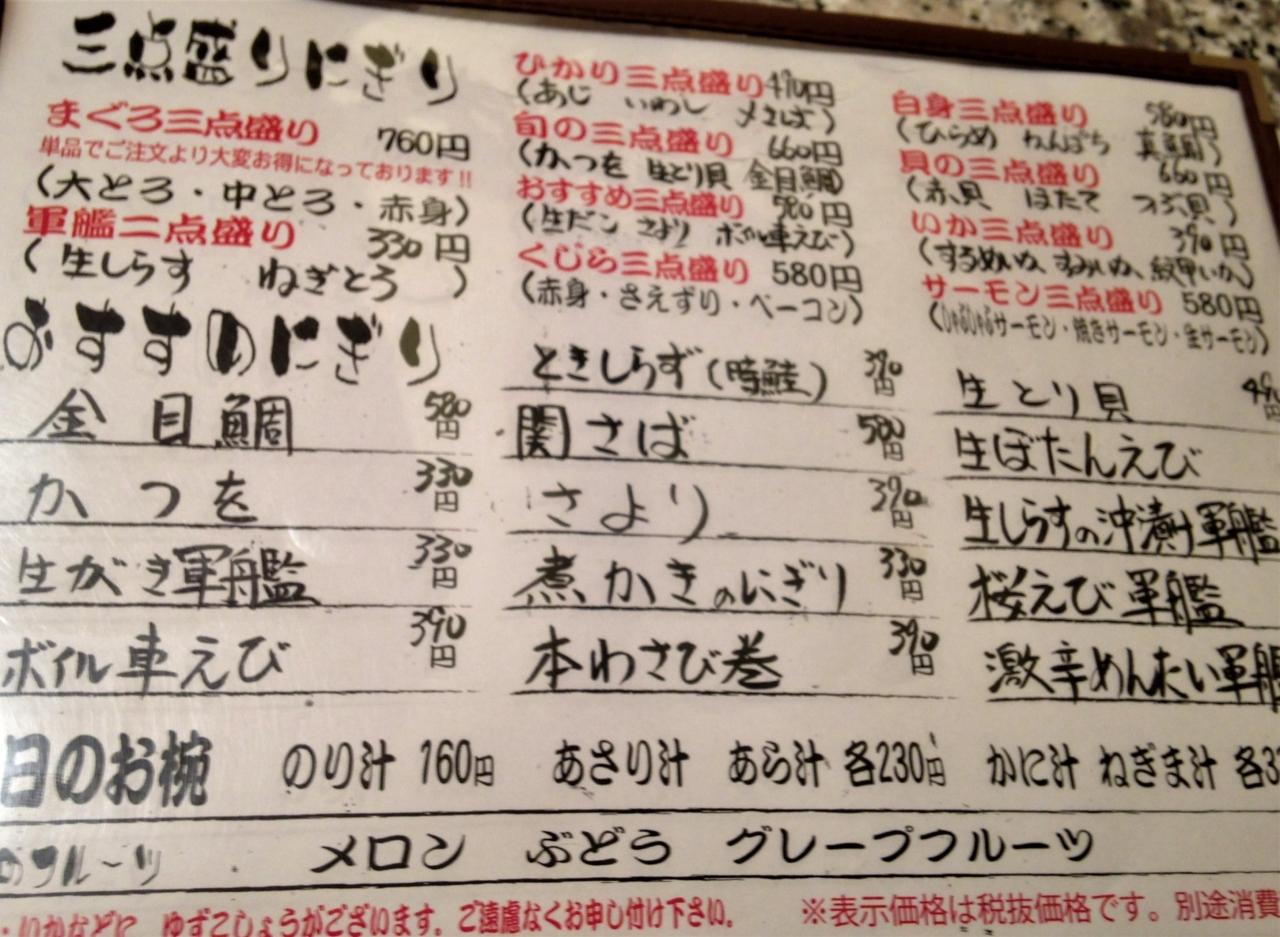 三点盛りにぎり
まぐろ三点盛り 760円
単品でご注文より大変お得になっております!!
(大とろ・中とろ・赤身)
軍艦二点盛り 330円
(生しらす ねぎとろ)
ひかり三点盛り 490円
(あじ いわし 〆さば)
旬の三点盛り 660円
(かつを 生とり貝 金目鯛)
おすすめ三点盛り 580円
(生だこ さより ボイル車えび)
くじら三点盛り 580円
(赤身・さえずり・ベーコン)
白身三点盛り 580円
(ひらめ かんぱち 真鯛)
貝の三点盛り 660円
(赤貝 ほたて つぶ貝)
いか三点盛り 390円
(するめいか、すみいか、紋甲いか)
サーモン三点盛り 580円
おすすめにぎり
金目鯛 580円
かつを 330円
生がき軍艦 330円
ボイル車えび 390円
ときしらず(時鮭) 390円
関さば 580円
さより 390円
煮かきのにぎり 330円
本わさび巻 390円
生とり貝
生ぼたんえび
生しらすの沖漬け軍艦
桜えび軍艦
激辛めんたい軍艦
日のお椀 のり汁 160円 あさり汁 あら汁 各230円 かに汁 ねぎま汁 各3
のフルーツ メロン ぶどう グレープフルーツ
・いかなどに ゆずこしょうがございます。ご遠慮なくお申し付け下さい。 ※表示価格は税抜価格です。別途消費